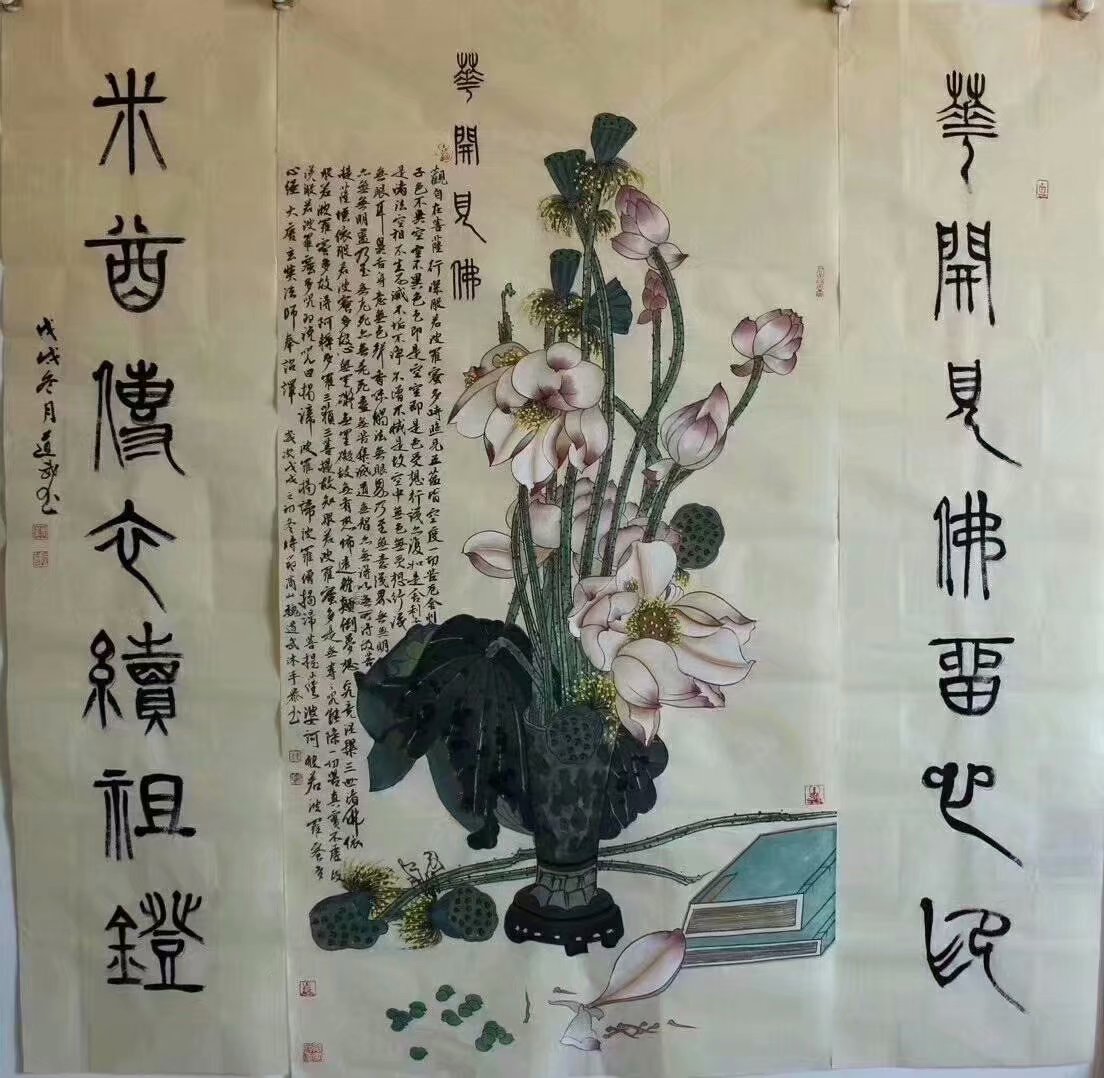 華開見佛留心印
華開見佛
觀自在菩薩行深般若波羅蜜多時照見五蘊皆空度一切苦厄舍利
子色不異空空不異色色即是空空即是色受想行識亦復如是舍利子
是諸法空相不生不滅不垢不淨不增不減是故空中無色無受想行識
無眼耳鼻舌身意無色聲香味觸法無眼界乃至無意識界無無明
亦無無明盡乃至無老死亦無老死盡無苦集滅道無智亦無得以無所得故菩
提薩埵依般若波羅蜜多故心無罣礙無罣礙故無有恐怖遠離顛倒夢想究竟涅槃三世諸佛依
般若波羅蜜多故得阿耨多羅三藐三菩提故知般若波羅蜜多是無等等咒能除一切苦真實不虛故
說般若波羅蜜多咒即說咒曰揭諦 波羅揭諦波羅僧揭諦菩提薩婆訶 般若波羅蜜多
心經 大唐玄奘法師奉詔譯 歲次戊戌之初冬時節商山魏道武沐手恭書
米酋傳衣續祖鐙
戊戌冬月道武書